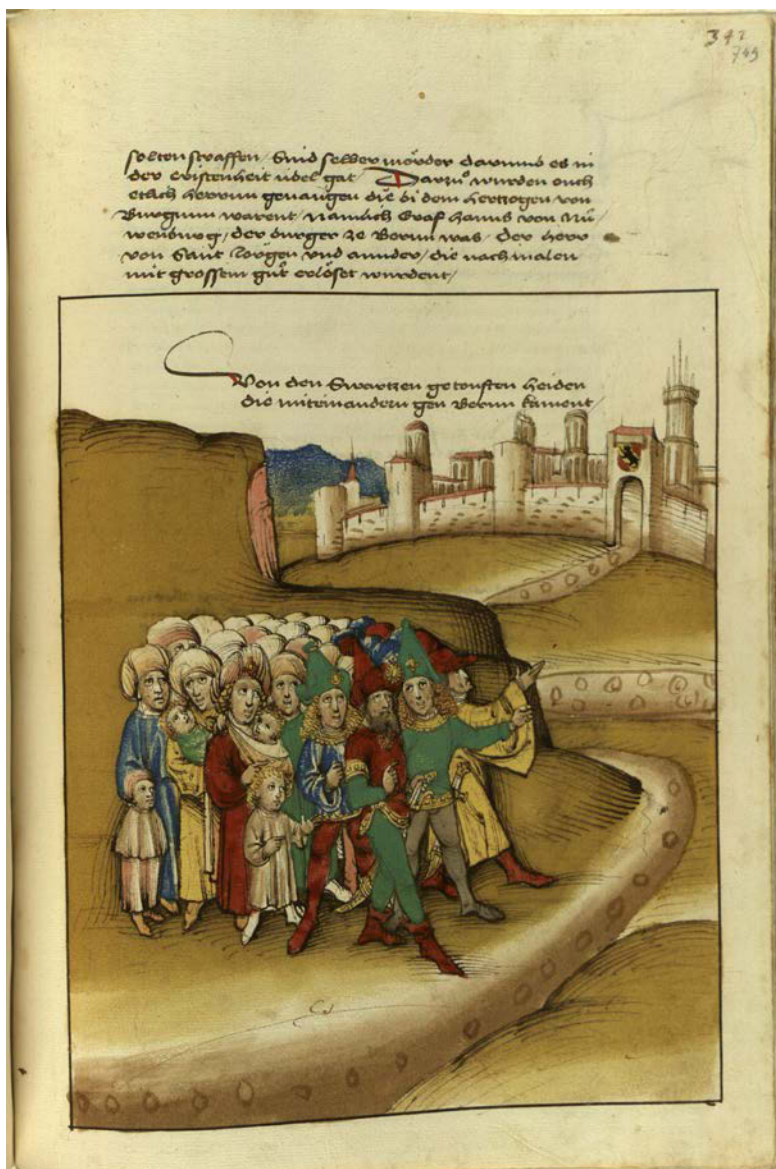 342
749
solten straffen / Sind selber mörder darumb es in
der cristenheit übel gat / Darzů wurden ouch
etlich herrnn gevanngen die bi dem hertzogen von
Burgunn warent / namlich Graf hanns von Nü /
wenburg / der burger ze Bernn was / der herr
von Sant Jörgen und annder / die nachmalen
mit grossem gůt erlöset wurdent /
Von den Swartzen getoufften heiden
die miteinandern gen Bernn kament /